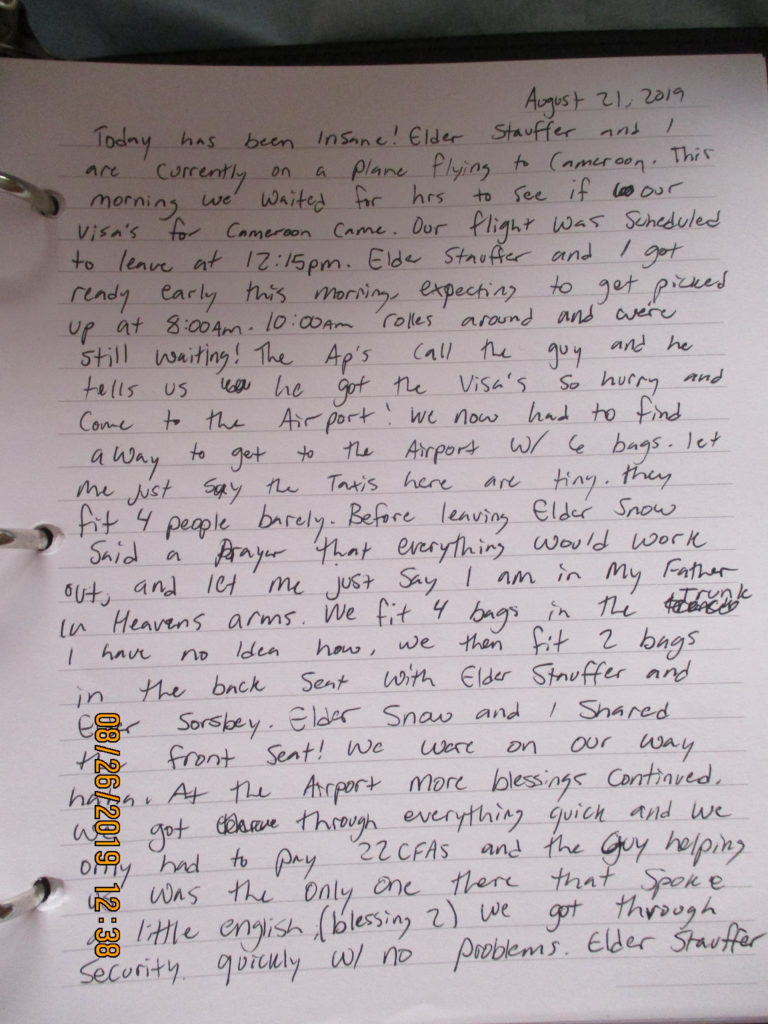 August 21, 2019
Today has been Insane! Elder Stauffer and I
are currently on a plane flying to Cameroon. This
morning we waited for hrs to see if our
Visa's for Cameroon Came. Our flight was Scheduled
to leave at 12:15pm. Elder Stauffer and I got
ready early this morning expecting to get picked
up at 8:00AM. 10:00AM rolles around and we're
still waiting! The Ap's call the guy and he
tells us he got the Visa's so hurry and
Come to the Airport! We now had to find
a way to get to the Airport w/ 6 bags. let
me just say the Taxis here are tiny. they
fit 4 people barely. Before leaving Elder Snow
Said a Prayer that everything would work
out, and let me just say I am in my Father
In Heavens arms. We fit 4 bags in the Trunk
I have no Idea how, we then fit 2 bags
in the back Seat with Elder Stauffer and
Sorsbey. Elder Snow and I Shared
front Seat! We were on our way
haha. At the Airport more blessings continued.
got through everything quick and we
only had to pay 22 CFAs and the Guy helping
was the only one there that Spoke
little english, (blessing 2) we got through
Security quickly w/ no problems. Elder Stauffer
08/26/2019 12:38